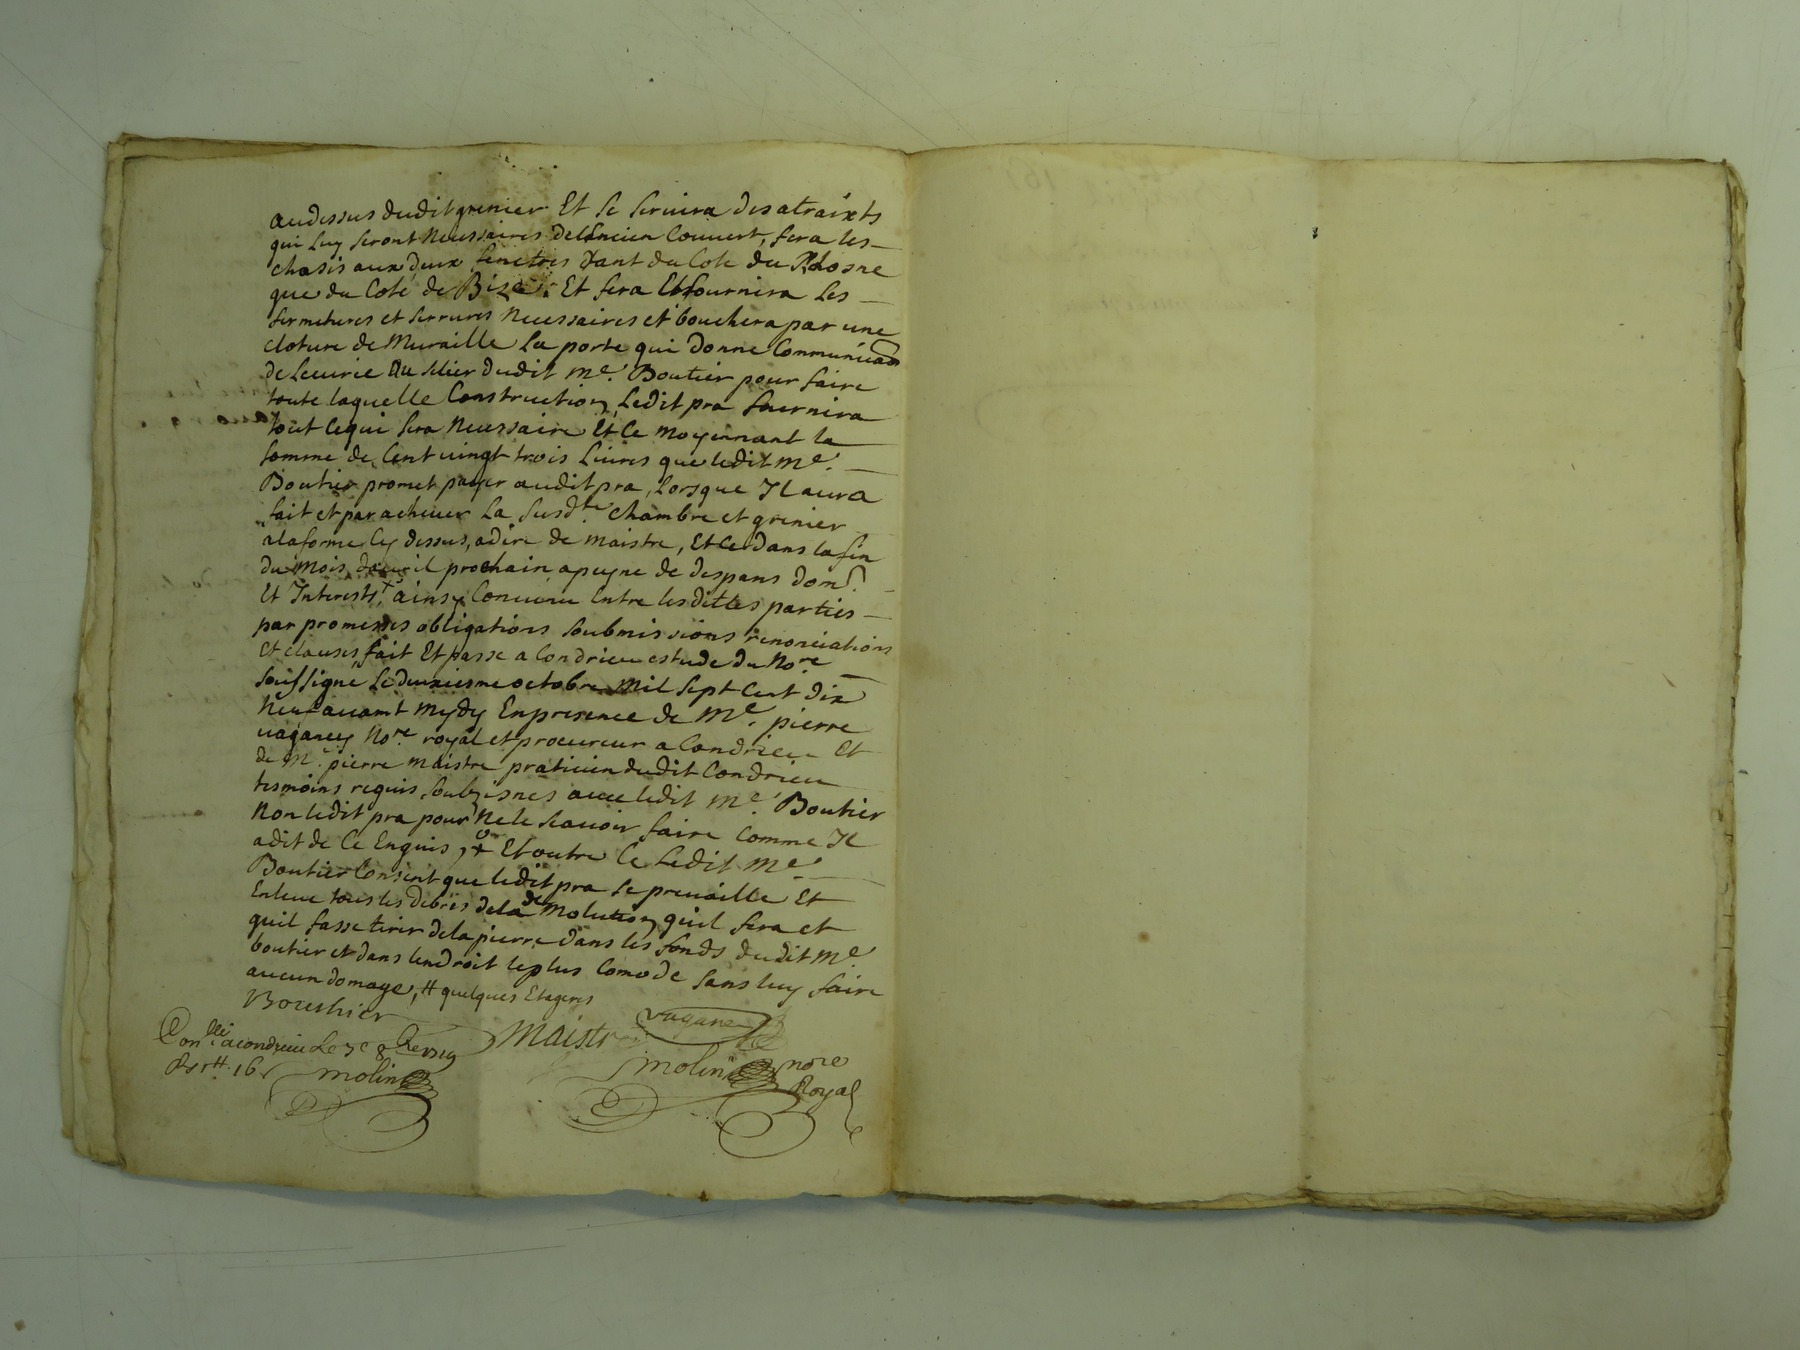 audessus dudit grenier Et se seruira des atraixts
qui Luy seront Neussaires de Lancien Couuert, fera les
chasis aux deux fenetres Tant du Cote du Rhosne
que du Cote de Bize. Et fera Et fournira Les
fermetures et serrures Necessaires et bouchera par une
cloture de Muraille La porte qui donne Communica͠on
de Lecurie au selier dudit me. Boutier pour faire
toute laquelle Construction, Ledit pra fournira
tout Cequi sera Neussaire Et Ce moyennant la
somme de Cent uingt trois Liures que ledit me.
Boutier promet payer audit pra, Lorsque Il aura
fait et paracheuer La susdte. Chambre et grenier
alaforme Cy dessus, adire de maistre, Et Ce dans la fin
du mois dauril prochain apeyne de despans dom
Et Interests, + ainsy Conuenu Entre lesdittes parties
par promesses obligations soubmissions renonciations
Et clauses, fait Et passe a Condrieu estude du Nore
soussigne Le deuxiesme octobre Mil sept Cent dix
Neuf auant mydy Enpresence de Me. pierre
uaganey Nore. royal et procureur a Condrieu Et
de Me. pierre maistre praticien dudit Condrieu
tesmoins requis, soubzisnes auec ledit me. Boutier
Non ledit pra pour Ne le scauoir faire Comme Il
adit de Ce Enquis, + Et outre Ce Ledit Me.
Boutier Consent que ledit pra se preuaille Et
Enleue tous les debris dela de Molution quil fera et
quil fasse tirer dela pierre dans les fonds dudit Me.
boutier et dans lendroit leplus Comode sans luy faire
aucun domage, # quelques Etageres
Bouthier
Maistre
uaganey
Conllé acondrieu Le 7e 8bre 1719
molin nore
Royal
molin